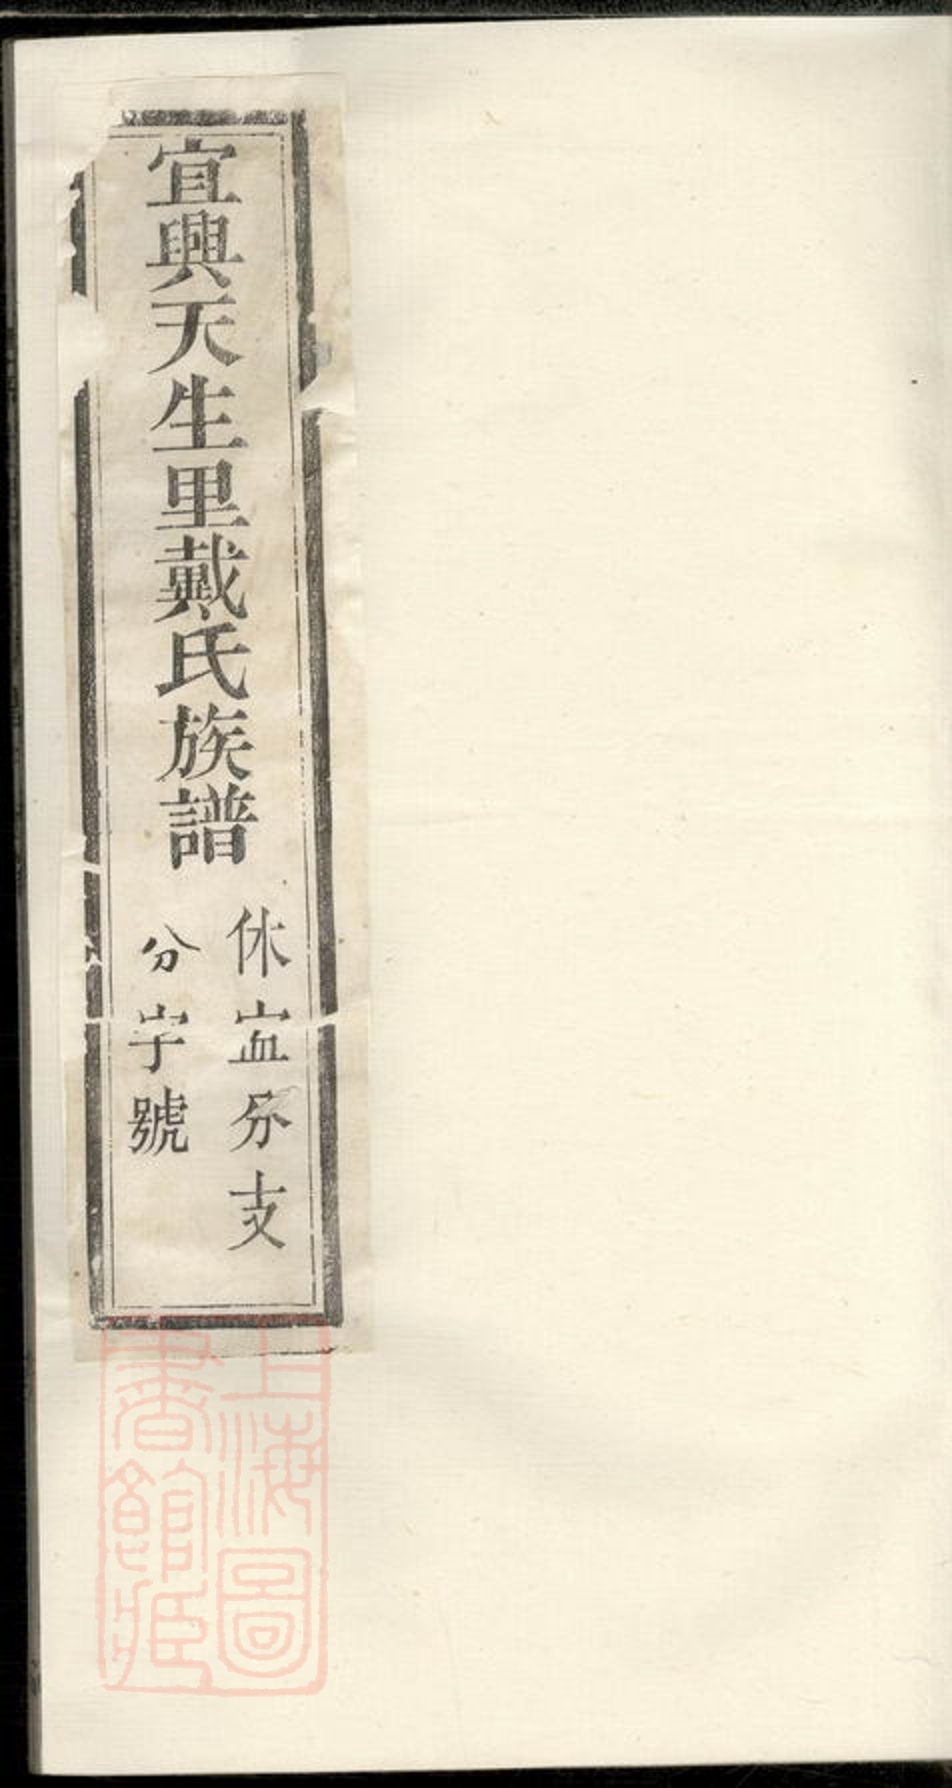 宜興天生里戴氏族譜
休寍分支
分字號
上海圖
書館藏